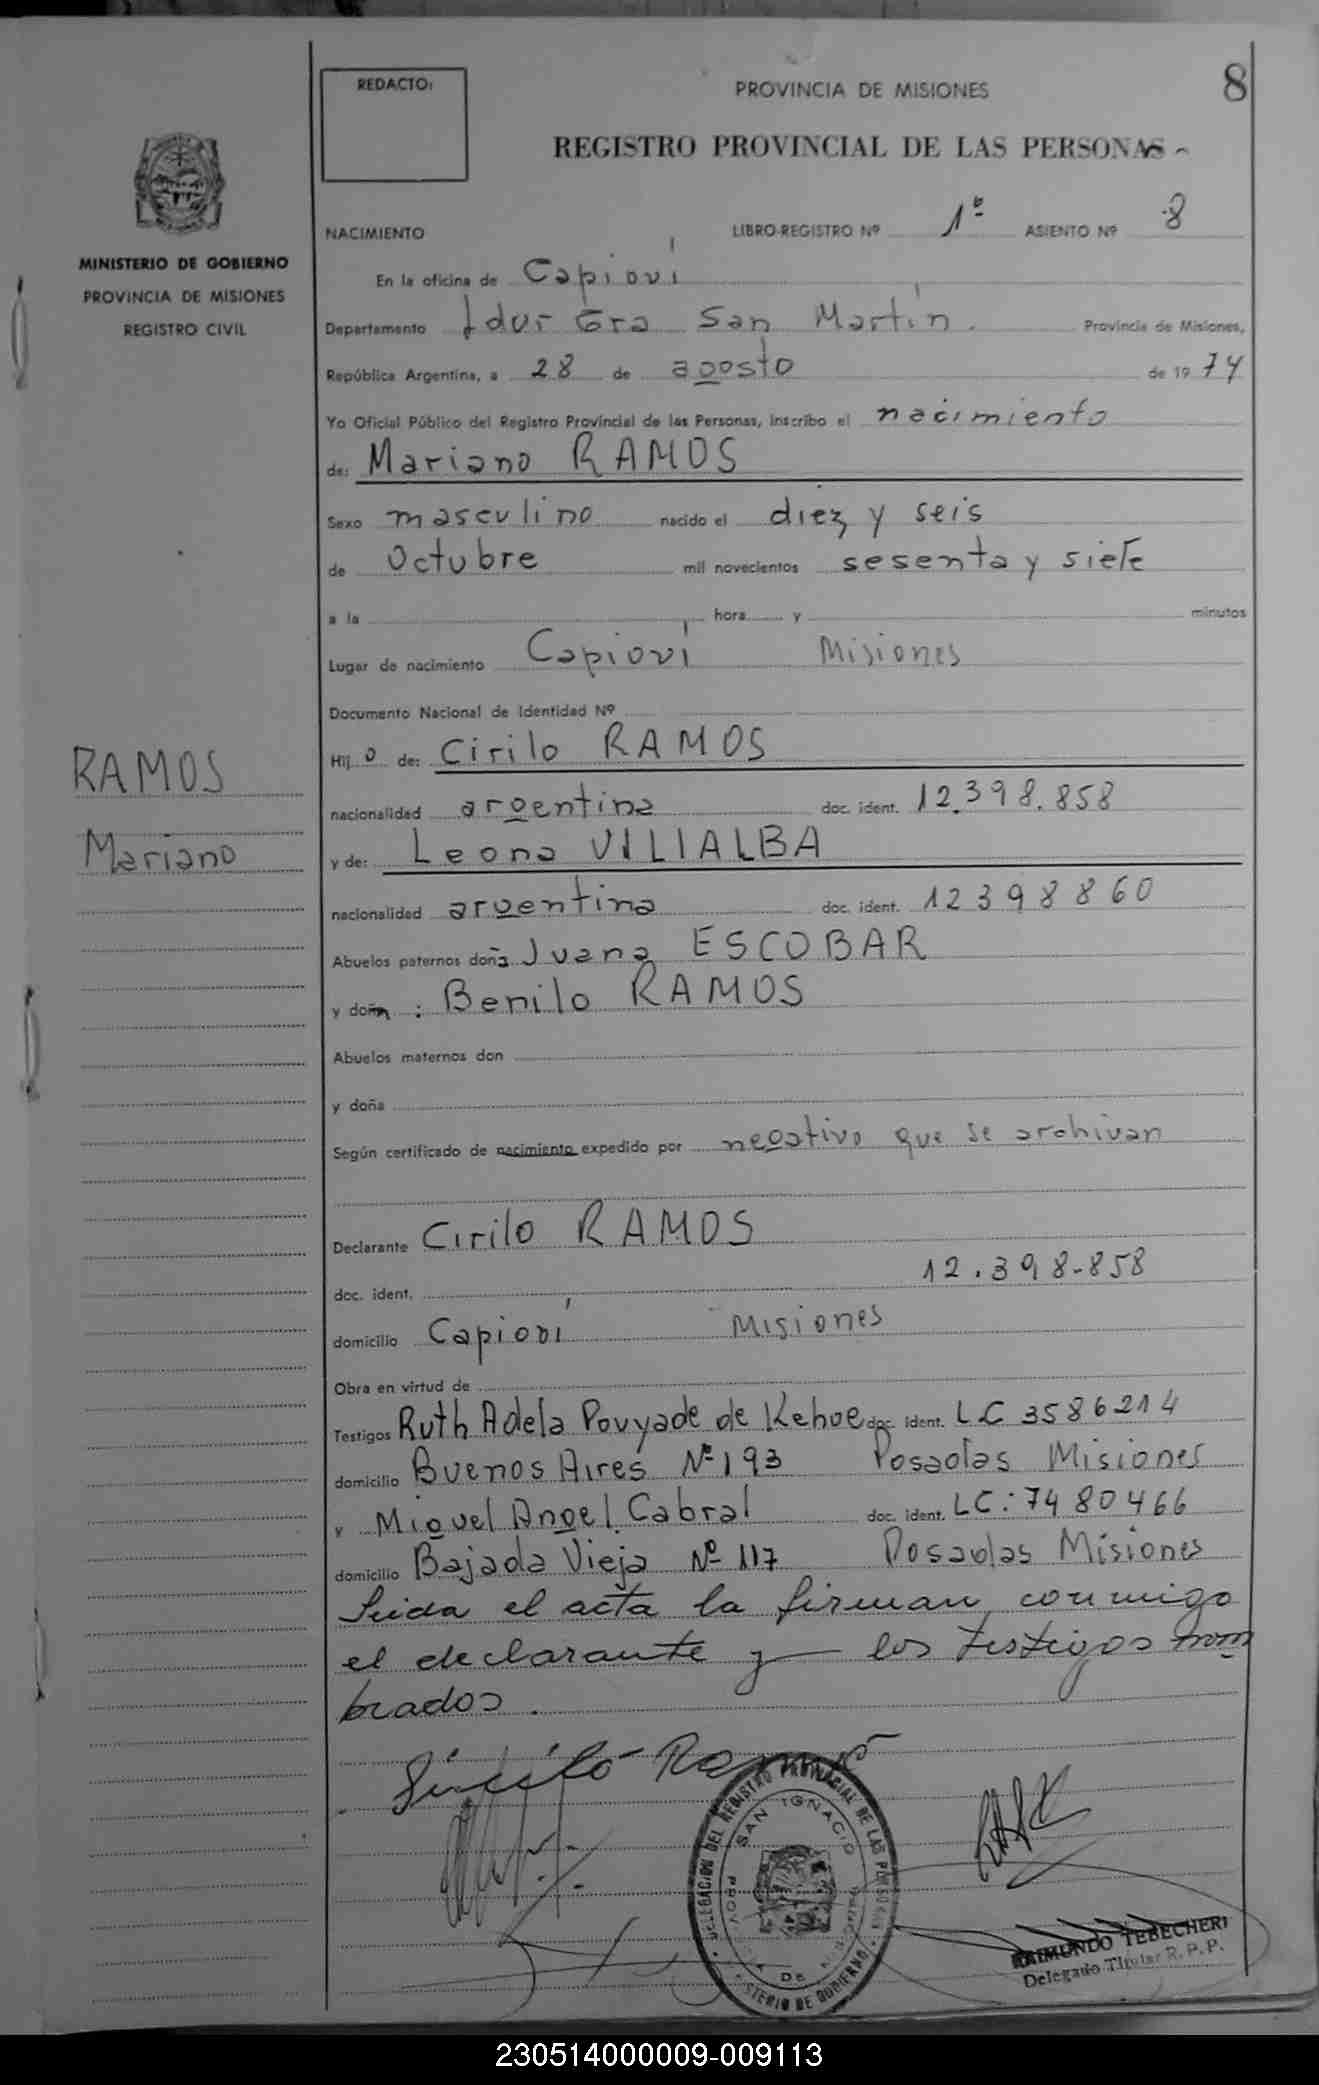 REDACTO:
PROVINCIA DE MISIONES
8
REGISTRO PROVINCIAL DE LAS PERSONAS
MINISTERIO DE GOBIERNO
PROVINCIA DE MISIONES
REGISTRO CIVIL
NACIMIENTO LIBRO-REGISTRO Nº 1º ASIENTO Nº 8
En la oficina de Capioví
Departamento Ldor Gra San Martín. Provincia de Misiones,
República Argentina, a 28 de agosto de 1974
Yo Oficial Público del Registro Provincial de las Personas, inscribo el nacimiento
de: Mariano RAMOS
Sexo masculino nacido el diez y seis
de Octubre mil novecientos sesenta y siete
a la hora y minutos
Lugar de nacimiento Capioví Misiones
Documento Nacional de Identidad Nº
Hijo de: Cirilo RAMOS
nacionalidad argentina doc. ident. 12.398.858
y de: Leona VILLALBA
nacionalidad argentina doc. ident. 12398860
Abuelos paternos doña Juana ESCOBAR
y don : Benilo RAMOS
Abuelos maternos don
y doña
Según certificado de nacimiento expedido por negativo que se archivan
Declarante Cirilo RAMOS
doc. ident. 12.398-858
domicilio Capioví Misiones
Obra en virtud de
Testigos Ruth Adela Pouyade de Kehoe doc. ident. LC 3586214
domicilio Buenos Aires Nº 193 Posadas Misiones
y Miguel Angel Cabral doc. ident. LC: 7480466
domicilio Bajada Vieja Nº 117 Posadas Misiones
Leida el acta la firman conmigo
el declarante y los testigos nom
brados.
RAMOS
Mariano
Sirilo Ramo
DELEGACION DEL REGISTRO PROVINCIAL DE LAS PERSONAS
SAN IGNACIO
PROVINCIA DE MISIONES
MINISTERIO DE GOBIERNO
RAIMUNDO TEBECHERI
Delegado Titular R. P. P.
230514000009-009113